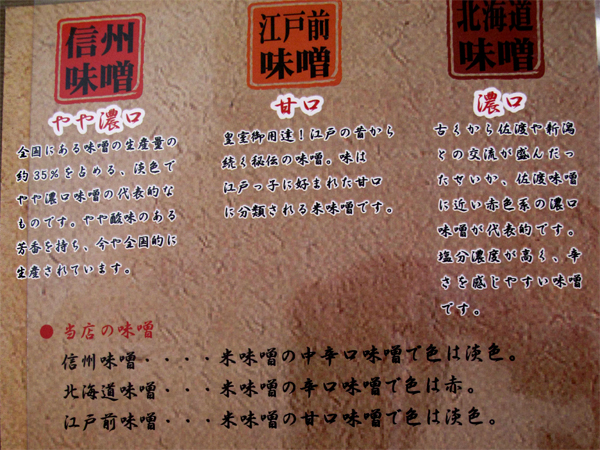 信州
味噌
やや濃口
全国にある味噌の生産量の
約35%を占める、淡色で
やや濃口味噌の代表的な
ものです。やや酸味のある
芳香を持ち、今や全国的に
生産されています。
江戸前
味噌
甘口
皇室御用達！江戸の昔から
続く秘伝の味噌。味は
江戸っ子に好まれた甘口
に分類される米味噌です。
北海道
味噌
濃口
古くから佐渡や新潟
との交流が盛んだっ
たせいか、佐渡味噌
に近い赤色系の濃口
味噌が代表的です。
塩分濃度が高く、辛
さを感じやすい味噌
です。
●当店の味噌
信州味噌・・・・米味噌の中辛口味噌で色は淡色。
北海道味噌・・・米味噌の辛口味噌で色は赤。
江戸前味噌・・・米味噌の甘口味噌で色は淡色。